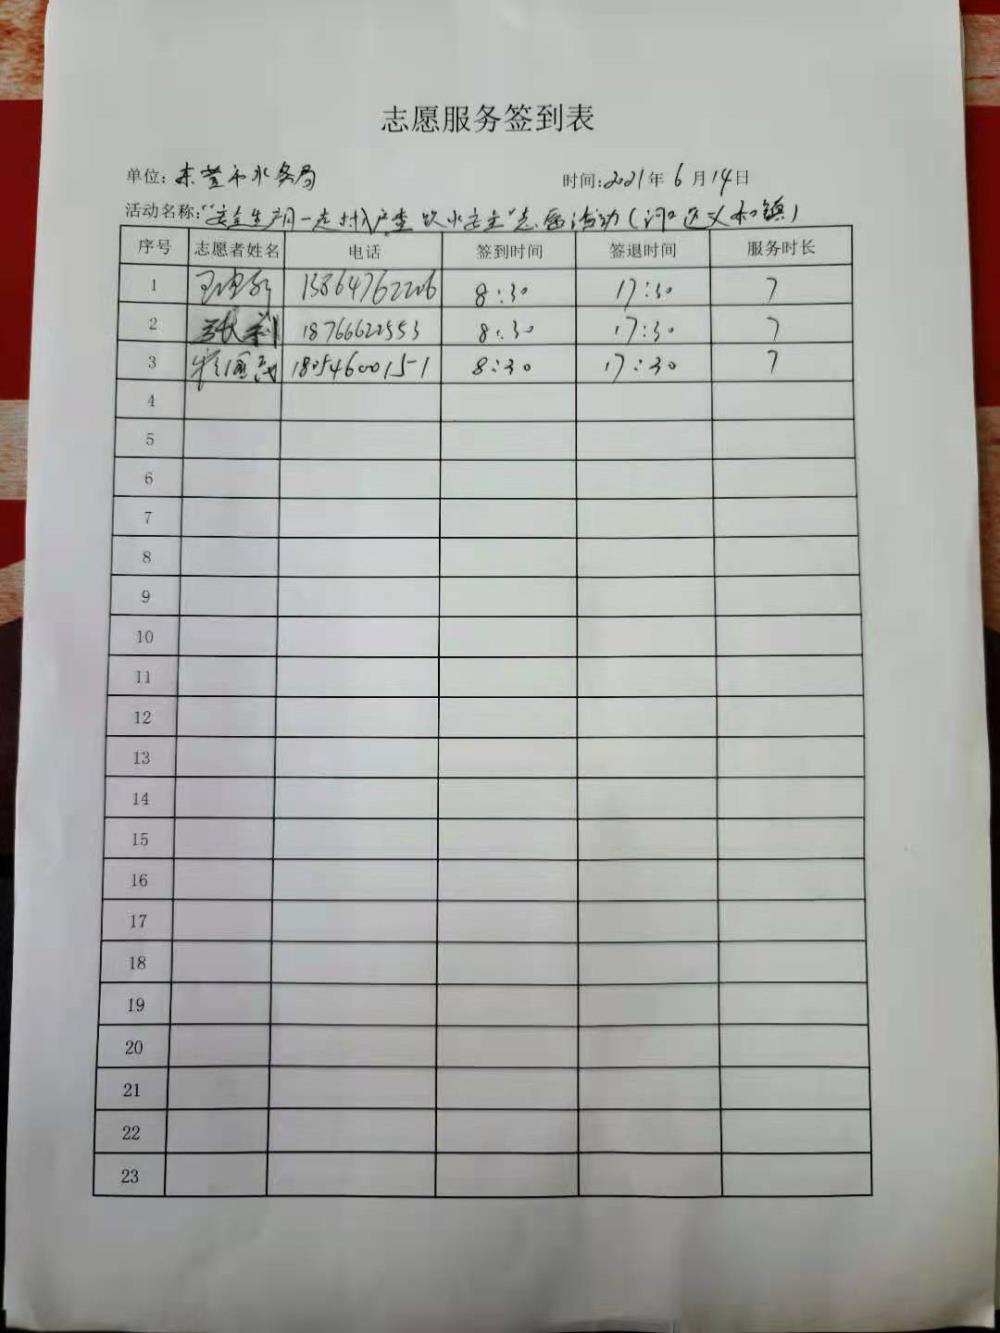 志愿服务签到表
单位: 东营市水务局 时间:2021年6月14日
活动名称:"安全生产月—走村入户查饮水安全"志愿活动(河口区义和镇)
序号 志愿者姓名 电话 签到时间 签退时间 服务时长
1 13864762206 8:30 17:30 7
2 张莉 18766622553 8:30 17:30 7
3 18054600151 8:30 17:30 7
4
5
6
7
8
9
10
11
12
13
14
15
16
17
18
19
20
21
22
23